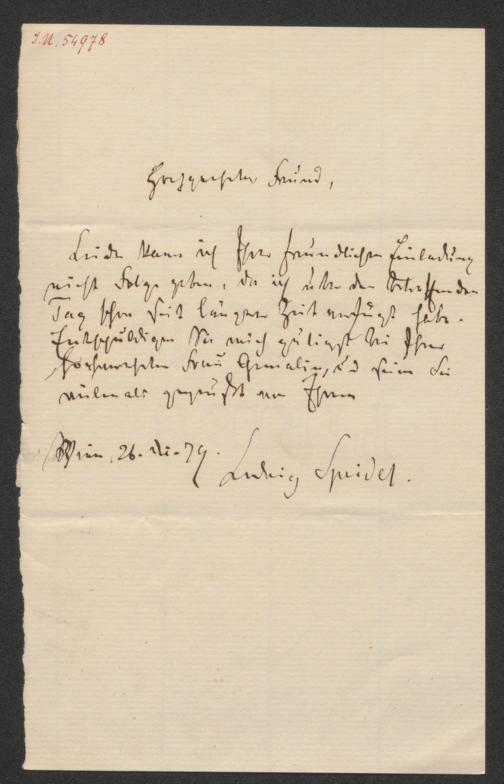 I.N. 54978
Hochgeehrter Freund,
Leider kann ich Ihrer freundlichen Einladung
nicht Folge geben, da ich über den betreffenden
Tag schon seit längerer Zeit verfügt habe.
Entschuldigen Sie mich gütigst bei Ihrer
hochverehrten Frau Gemalin, und seien Sie
vielmals gegrüßt von Ihrem
Wien, 26. XI. 79.
Ludwig Speidel.